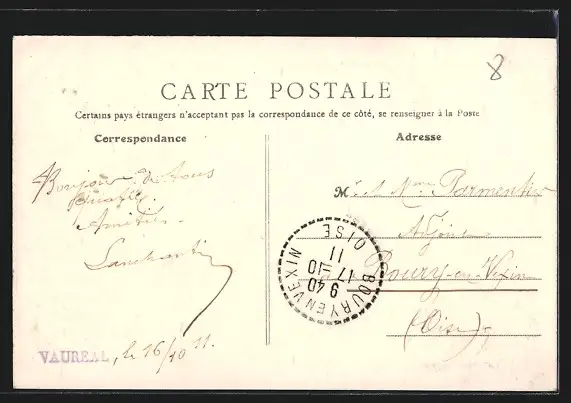 8
CARTE POSTALE
Certains pays étrangers n'acceptant pas la correspondance de ce côté, se renseigner à la Poste
Correspondance
Adresse
Bonjour de tous
Amitiés.
VAUREAL, le 16/10 11.
M. & Mme Parmentier
Boury-en-Vexin
(Oise)
BOURY EN VEXIN
9 40
17 -10
11
OISE